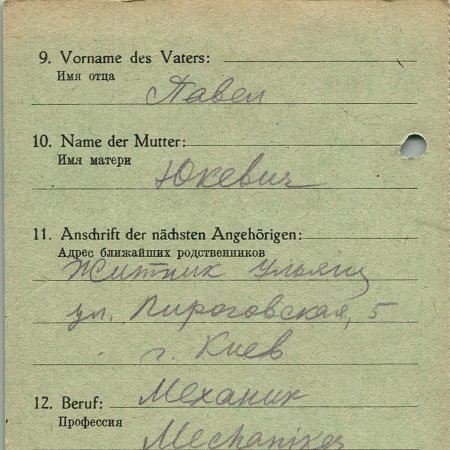 9. Vorname des Vaters:
Имя отца
Павел
10. Name der Mutter:
Имя матери
Юкевич
11. Anschrift der nächsten Angehörigen:
Адрес ближайших родственников
Житник
ул. Пироговская, 5
г. Киев
12. Beruf: Механик
Профессия
Mechaniker